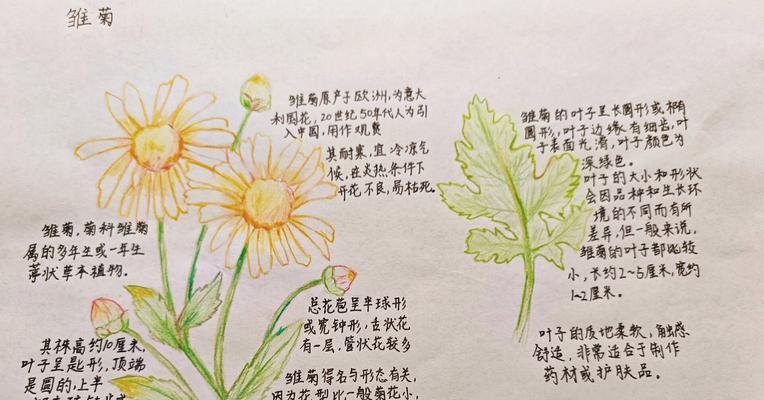 雏菊
雏菊原产于欧洲,为意大
利国花,20世纪50年代人为引
入中国,用作观赏
其耐寒,宜冷凉气
候,在炎热条件下
开花不良,易枯死。
雏菊,菊科雏菊
属的多年生或一年生
葶状草本植物。
其株高约10厘米,
叶子呈匙形,顶端
是圆的,上半
总花苞呈半球形
或宽钟形,舌状花
有一层,管状花较多
雏菊得名与形态有关,
因为花型比一般菊花小,
雏菊的叶子呈长圆形或椭
圆形,叶子边缘有细齿,叶
子表面光滑,叶子颜色为
深绿色。
叶子的大小和形状
会因品种和生长环
境的不同而有所
差异,但一般来说,
雏菊的叶子都比较
小,长约2~5厘米,宽约
1~2厘米。
叶子的质地柔软,触感
舒适,非常适合于制作
药材或护肤品。